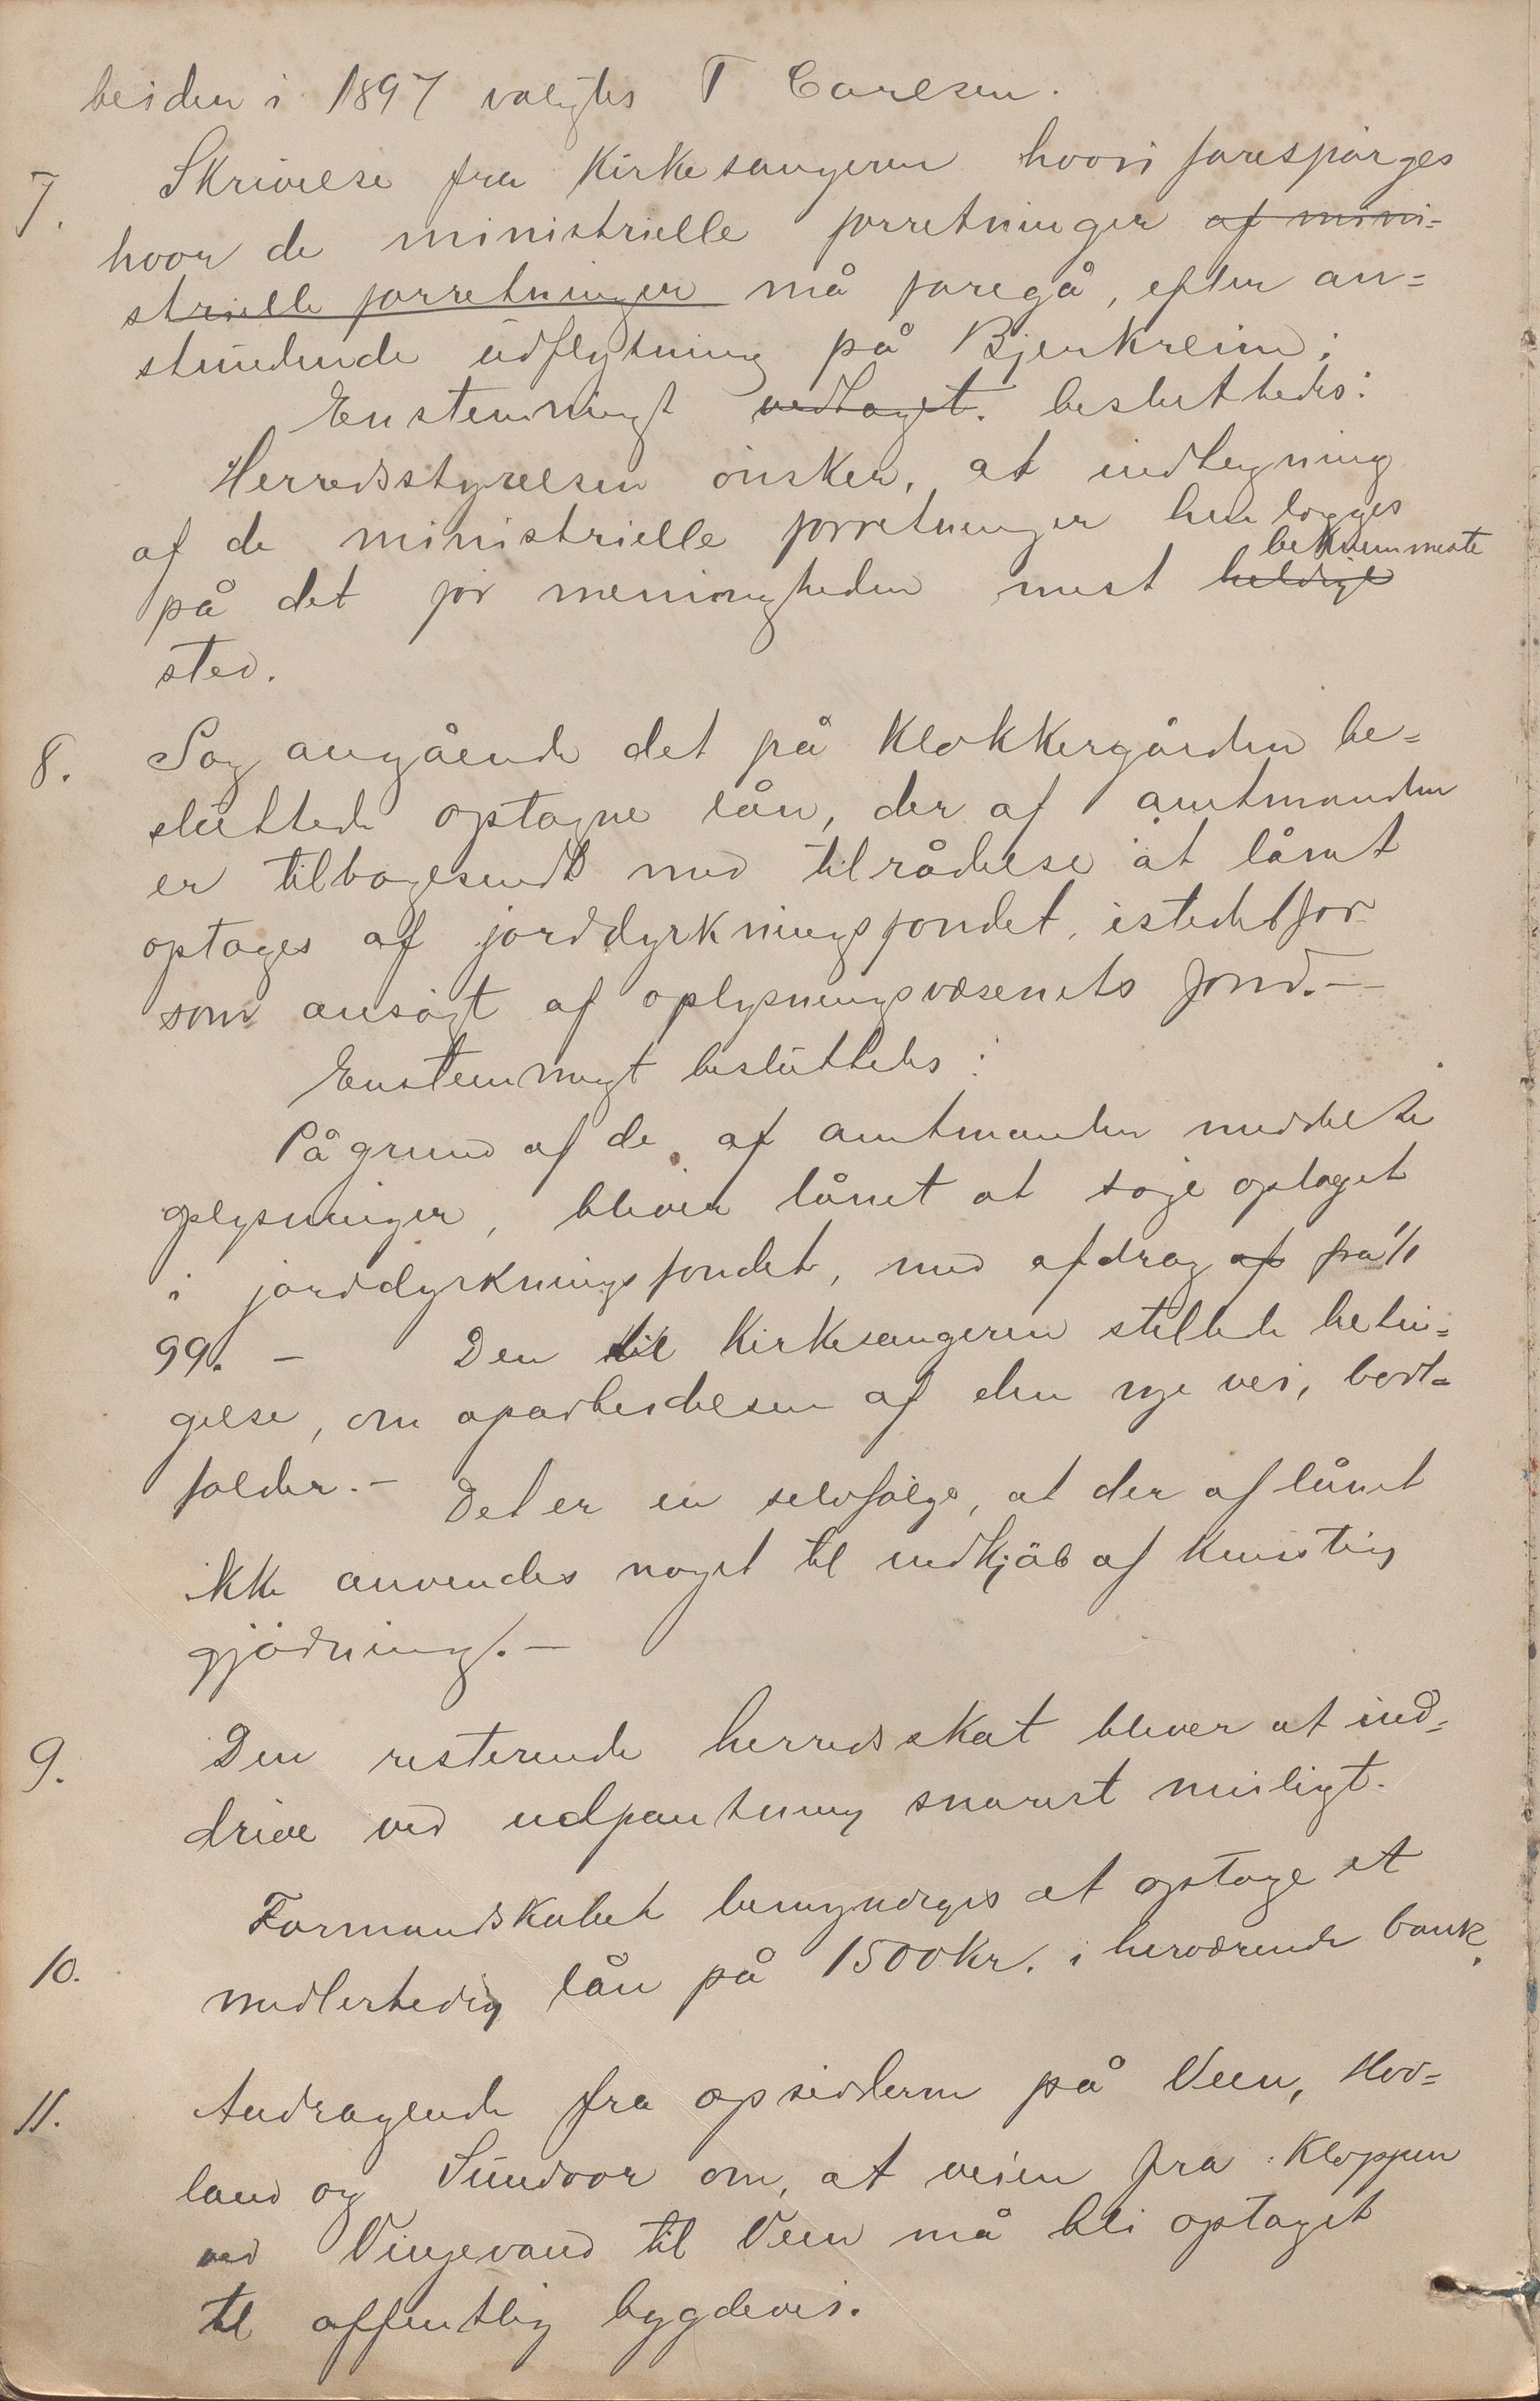 beiden i 1897 valgtes T Carlsen.
7. Skrivelse fra Kirkesangeren hvori forespørges
hvor de ministrielle forretninger af mini=
strielle forretninger må foregå, efter an=
stundende udflytning på Bjerkreim;
Enstemmigt vedtaget. besluttedes:
Herredsstyrelsen ønsker, at indtegning
af de ministrielle forretninger henlægges
på det for menigheden mest heldige bekvemmeste
sted.
8. Sag angående det på Klokkergården be=
sluttede optagne lån, der af amtmanden
er tilbagesendt med tilrådelse at lånet
optages af jorddyrkningsfondet, istedetfor
som ansøgt af oplysningsvæsenets fond. —
Enstemmigt besluttedes:
På grund af de af amtmanden meddelte
oplysninger, bliver lånet at søge optaget
i jorddyrkningsfondet, med afdrag af fra 1/1
99. – Den til Kirkesangeren stillede betin=
gelse, om oparbeidelsen af den nye vei, bort=
falder. – Det er en selvfølge, at der af lånet
ikke anvendes noget til indkjøb af Kunstig
gjødning. –
9. Den resterende herredsskat bliver at ind=
drive ved udpantning snarest muligt.
10. Formandskabet bemyndiges at optage et
midlertidig lån på 1500 Kr. i herværende bank.
11. Andragende fra opsidderne på Veen, Hov=
land og Sundvor om, at veien fra Kloppen
ved Vingevand til Veen må bli optaget
til offentlig bygdevei.